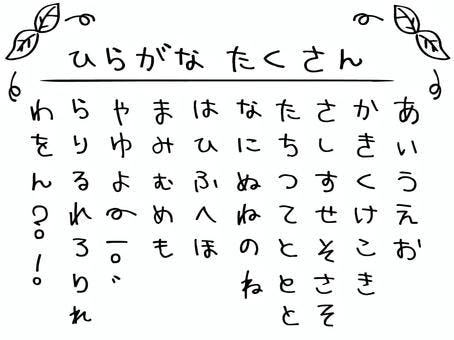 ひらがな たくさん
あいうえお
かきくけこき
さしすせそさそ
たちつてととと
なにぬねのね
はひふへほ
まみむめも
やゆよ〜ー。、
らりるれろりれ
わをん?。!。